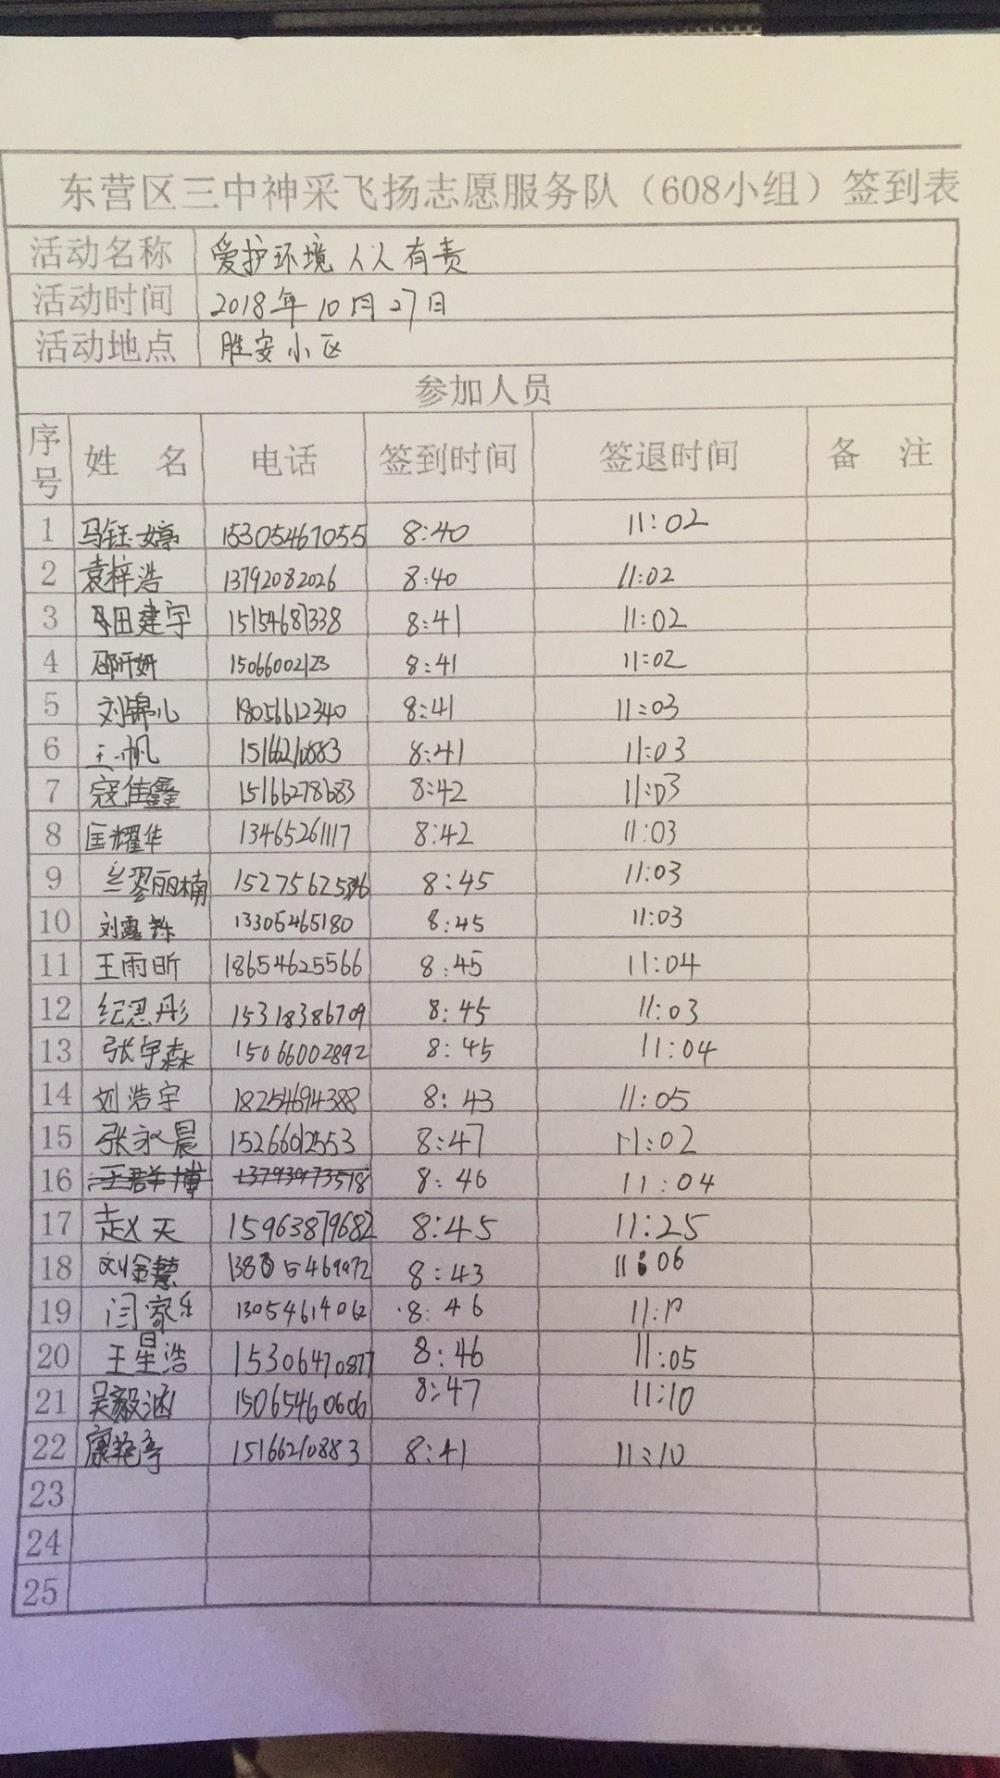 东营区三中神采飞扬志愿服务队（608小组）签到表
活动名称 爱护环境 人人有责
活动时间 2018年10月27日
活动地点 胜安小区
参加人员
序号 姓 名 电话 签到时间 签退时间 备 注
1 马钰婷 15305467055 8:40 11:02
2 袁梓浩 13792082026 8:40 11:02
3 田建宇 15154687338 8:41 11:02
4 邵妍妍 15066002123 8:41 11:02
5 刘锦儿 18056612340 8:41 11:03
6 王一帆 15166210883 8:41 11:03
7 寇佳鑫 15166278683 8:42 11:03
8 匡耀华 13465261117 8:42 11:03
9 8:45 11:03
10 刘露铄 13305465180 8:45 11:03
11 王雨昕 18654625566 8:45 11:04
12 纪思彤 15318386709 8:45 11:03
13 张宇森 15066002892 8:45 11:04
14 刘浩宇 18254694388 8:43 11:05
15 张永晨 15266012553 8:47 11:02
16 8:46 11:04
17 赵天 15963879682 8:45 11:25
18 刘金慧 8:43 11:06
19 闫家乐 13054614062 8:46
20 王星浩 15306470877 8:46 11:05
21 吴毅涵 15065460606 8:47 11:10
22 康艳亭 15166210883 8:41 11:10
23
24
25